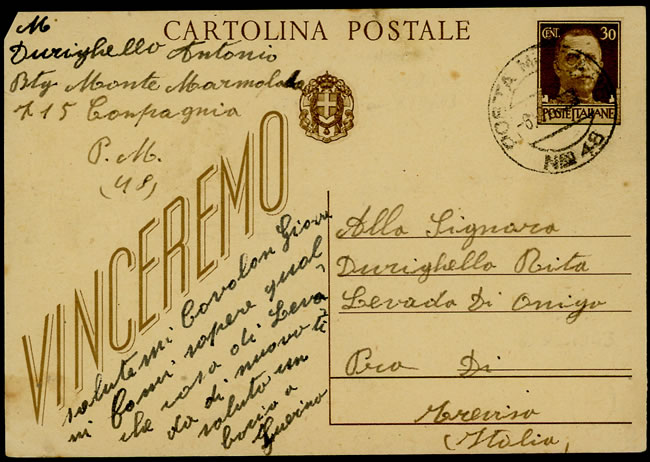 CARTOLINA POSTALE
M
Durighello Antonio
Btg Monte Marmolada
715 Compagnia
P. M.
(48)
CENT. 30
POSTE ITALIANE
POSTA M
No 48
VINCEREMO
Alla Signora
Durighello Rita
Levada Di Onigo
Pro Di
Treviso
(Italia)
salutemi Cavalon
mi fami sapere qual
che cosa di Leva
da di nuovo ti
saluto un
bacio a
Guerino